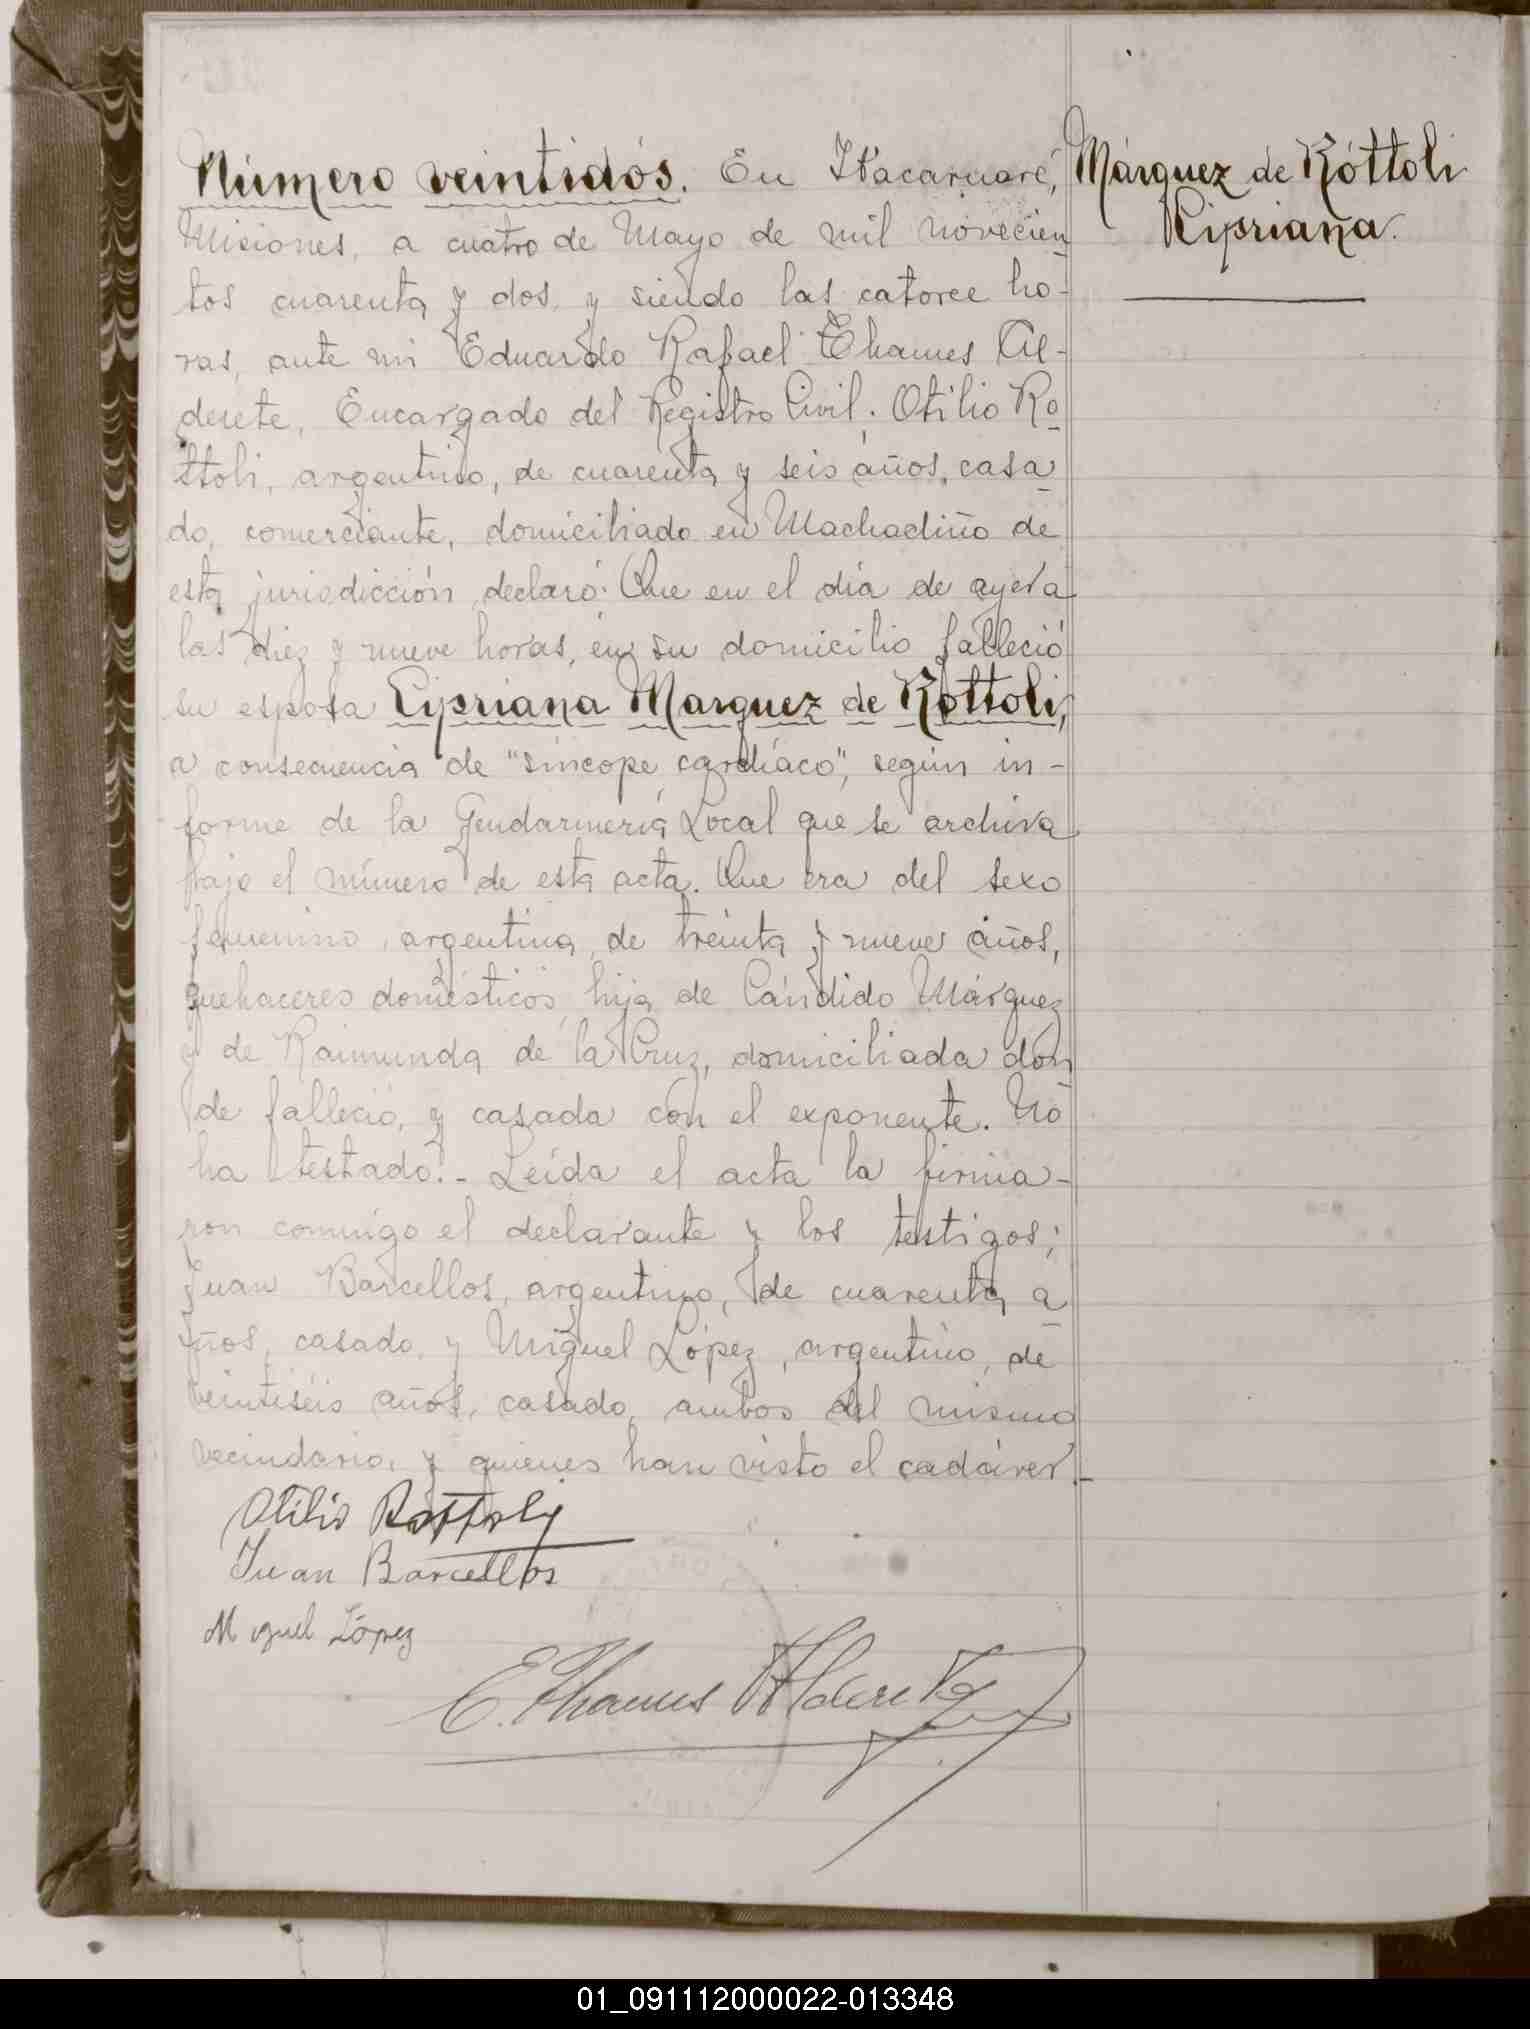 Número veintidós. En Itacaruaré,
Misiones, a cuatro de Mayo de mil novecien
tos cuarenta y dos, y siendo las catorce ho-
ras, ante mi Eduardo Rafael Thames Al-
derete, Encargado del Registro Civil, Otilio Ro
ttoli, argentino, de cuarenta y seis años, casa
do, comerciante, domiciliado en Machadiño de
esta jurisdicción declaró: Que en el día de ayer a
las diez y nueve horas, en su domicilio falleció
su esposa Cipriana Marquez de Rottoli,
a consecuencia de "síncope cardíaco", según in-
forme de la Gendarmería Local que se archiva
bajo el número de esta acta. Que era del sexo
femenino, argentina, de treinta y nueve años,
quehaceres domésticos, hija de Cándido Márquez
y de Raimunda de la Cruz, domiciliada don
de falleció, y casada con el exponente. No
ha testado.- Leída el acta la firma-
ron conmigo el declarante y los testigos;
Juan Barcellos, argentino, de cuarenta a
ños, casado, y Miguel López, argentino, de
veintiséis años, casado, ambos del mismo
vecindario, y quienes han visto el cadáver.-
Otilio Rottoli
Juan Barcellos
Miguel López
E. Thames Alderete
Márquez de Róttoli
Cipriana.
01_091112000022-013348